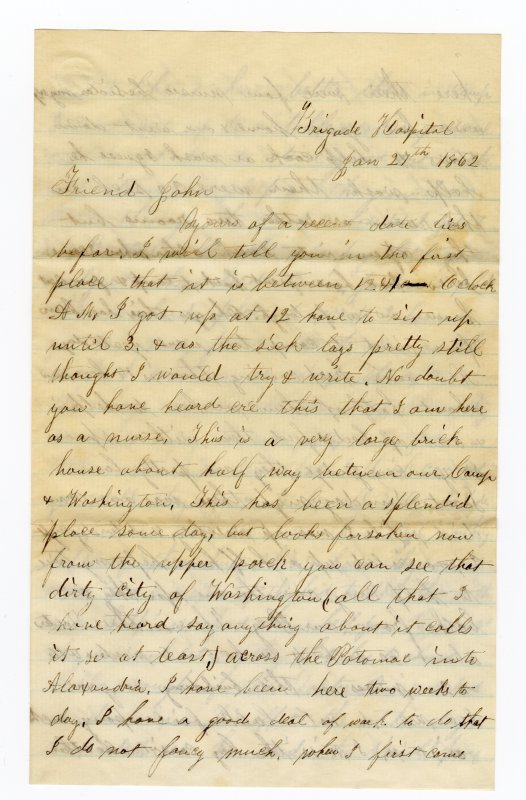 Brigade Hospital
Jan 27th 1862
Friend John
Yours of a recent date lies
before, I will till you in the first
place that it is between 12 & 1 Oclock
A M, I got up at 12 have to sit up
until 3. & as the sick lays pretty still
thought I would try & write. No doubt
you have heard ere this that I am here
as a nurse, This is a very large brick
house about half way between our Camp
& Washington, This has been a splendid
place some day, but looks forsaken now
from the upper porch you can see that
dirty city of Washington (all that I
have heard say anything about it calls
it so at least,) across the Potomac into
Alaxandria. I have been here two weeks to
day, I have a good deal of work to do that
I do not fancy much, when I first come